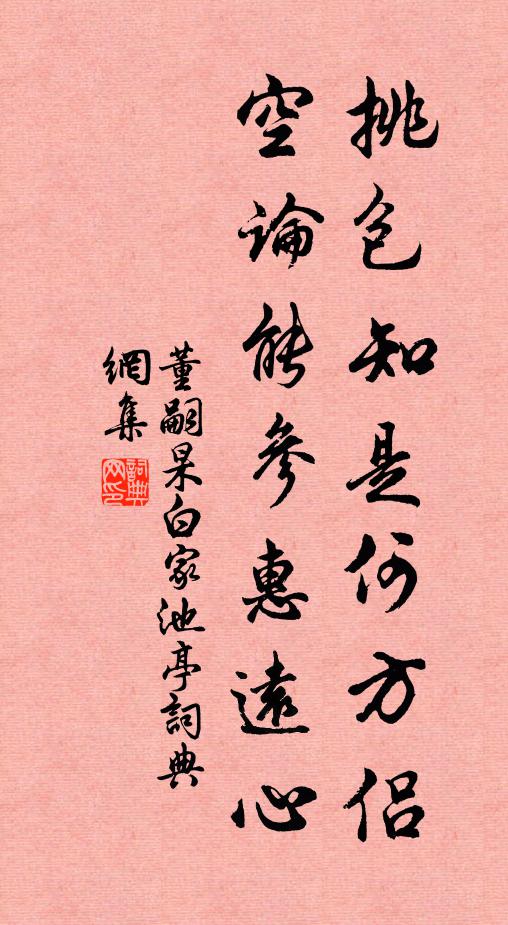 挑包知是何方侶
空論能參惠遠心
董嗣杲白家池亭詞典
網集
詞典網印